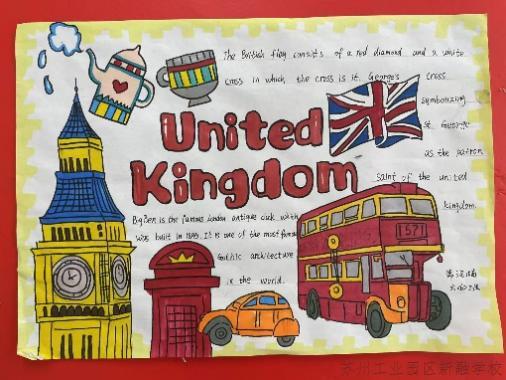 The British flag consists of a red diamond and a white
cross in which the cross is st. George's cross
symbolizing
st. George
as the patron
saint of the united
kingdom.
United
Kingdom
Big Ben is the famous London antique clock which
was built in
It is one of the most famous
Gothic architecture
in the world.
1571
苏州工业园区新融学校